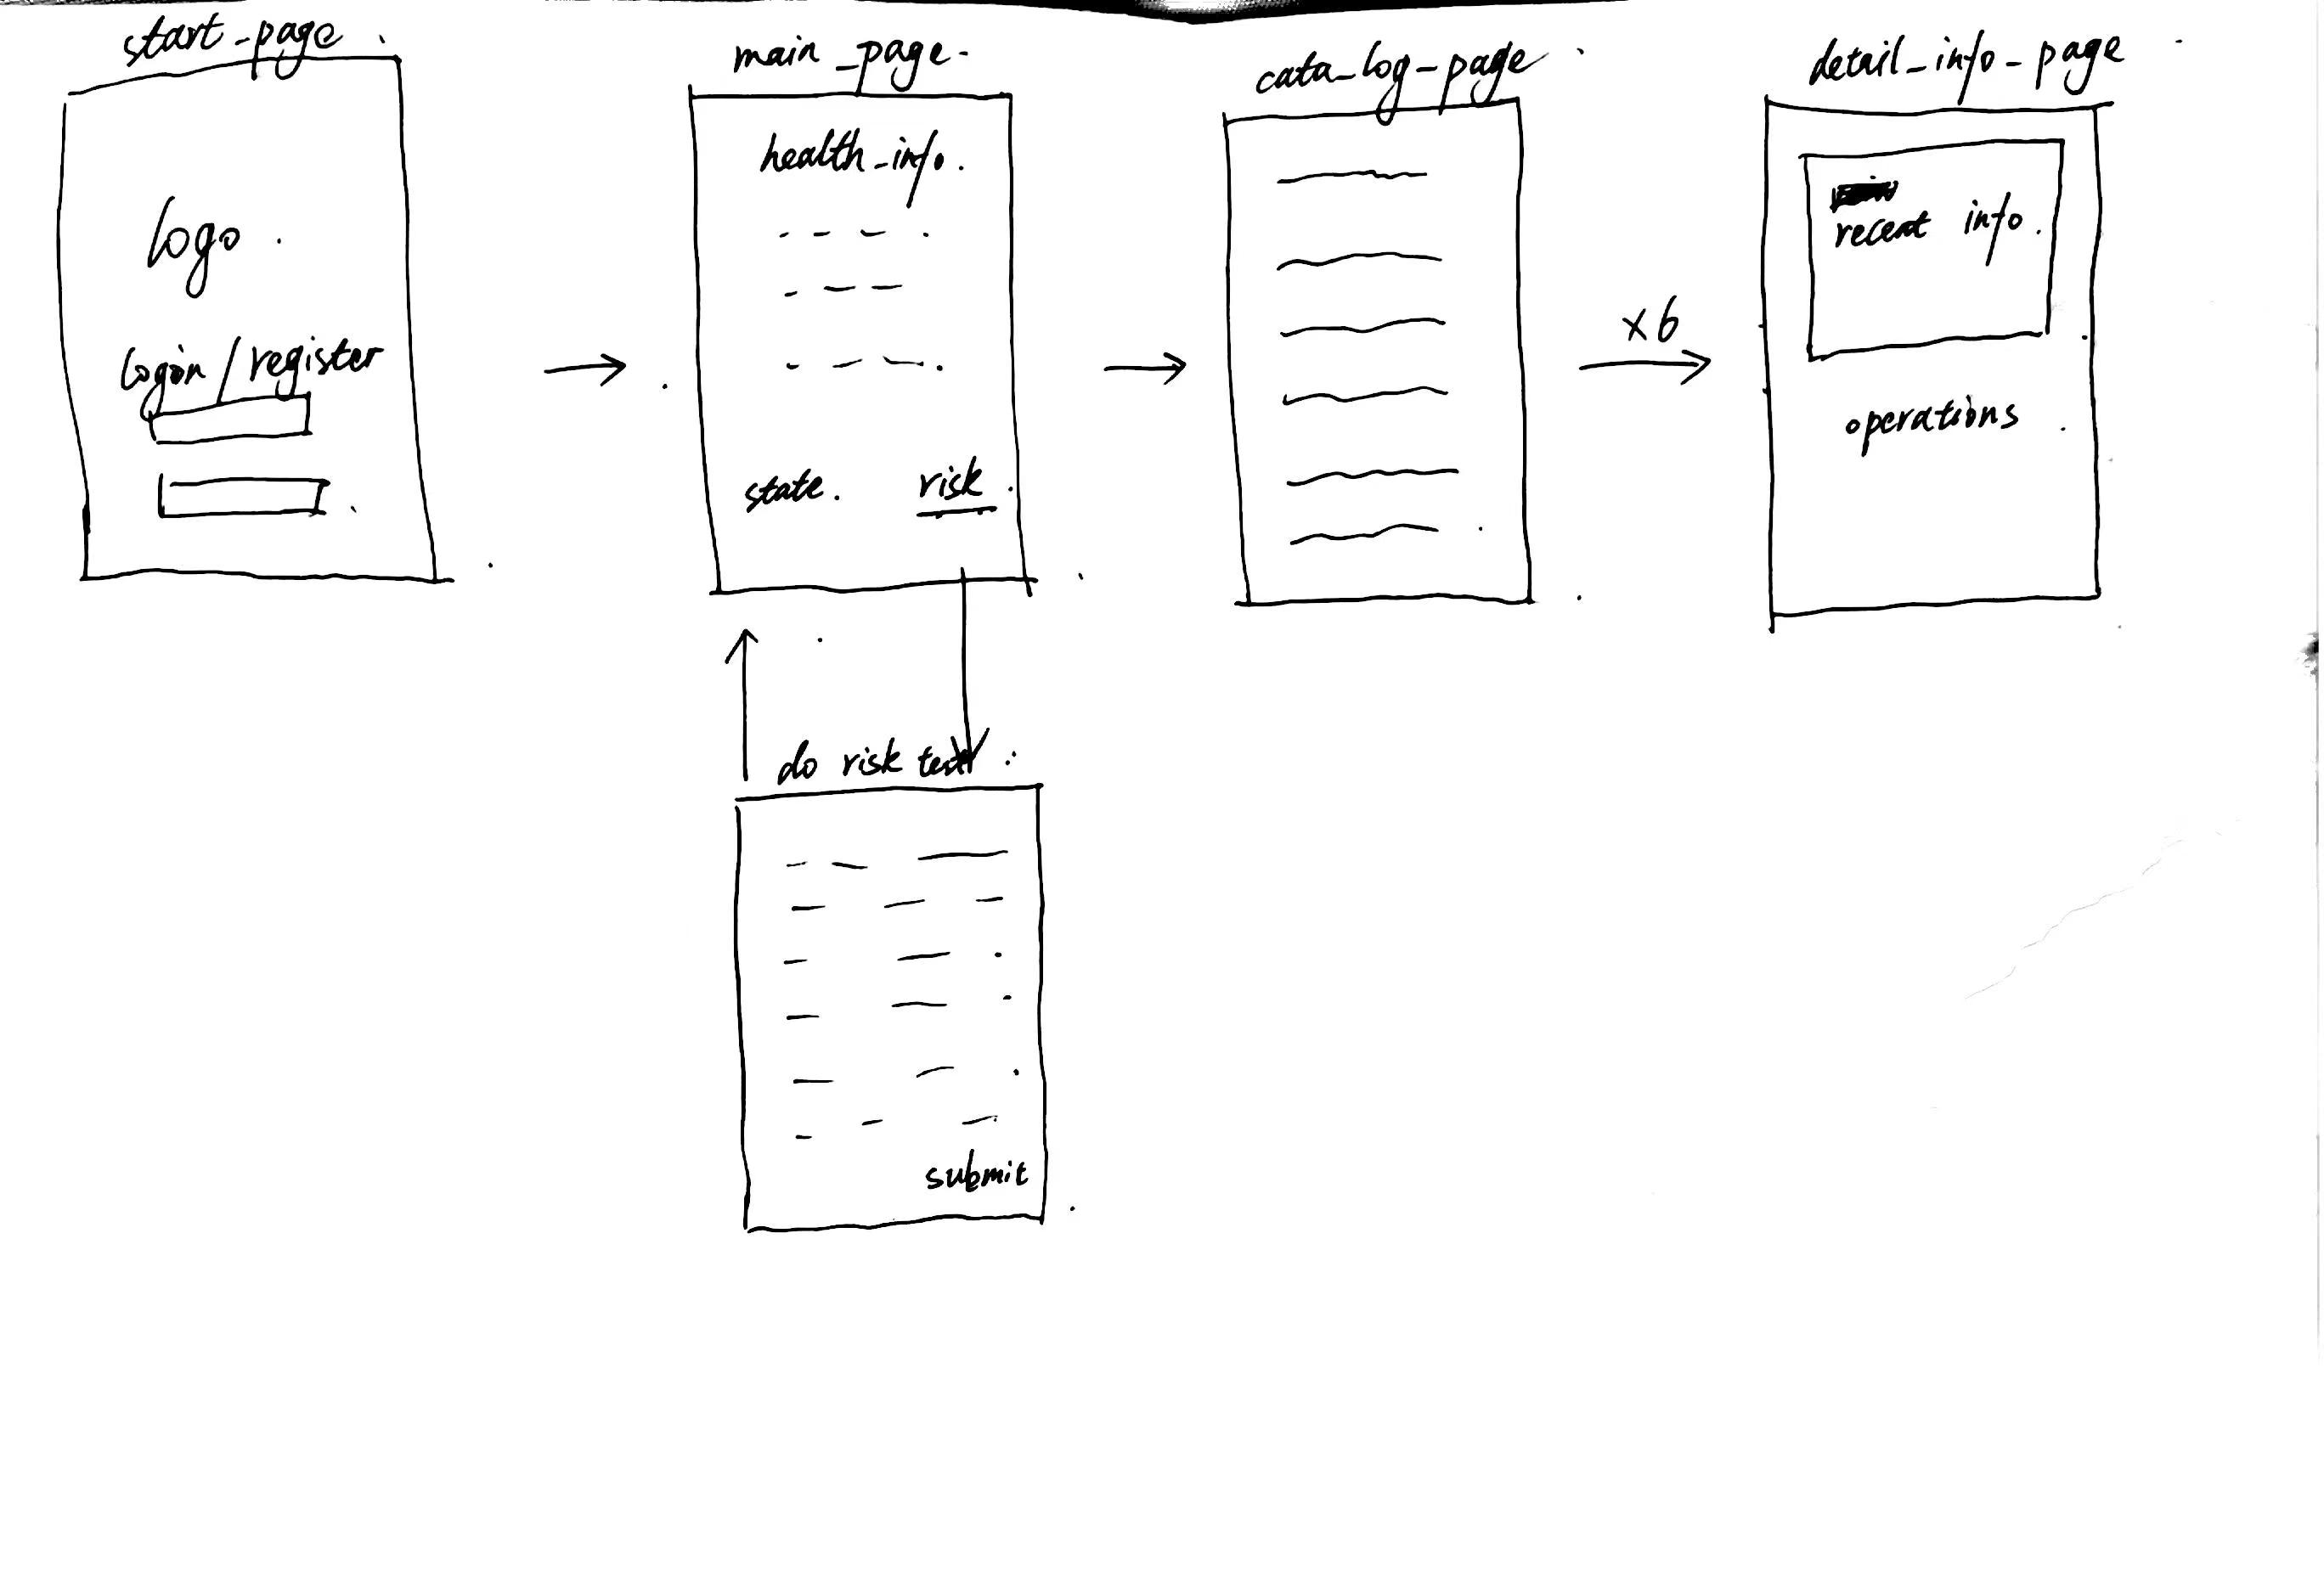 start_page
logo
login/register
main_page
health_info.
state. risk
cata_log_page
x6
detail_info_page
recent info.
operations
do risk test
submit